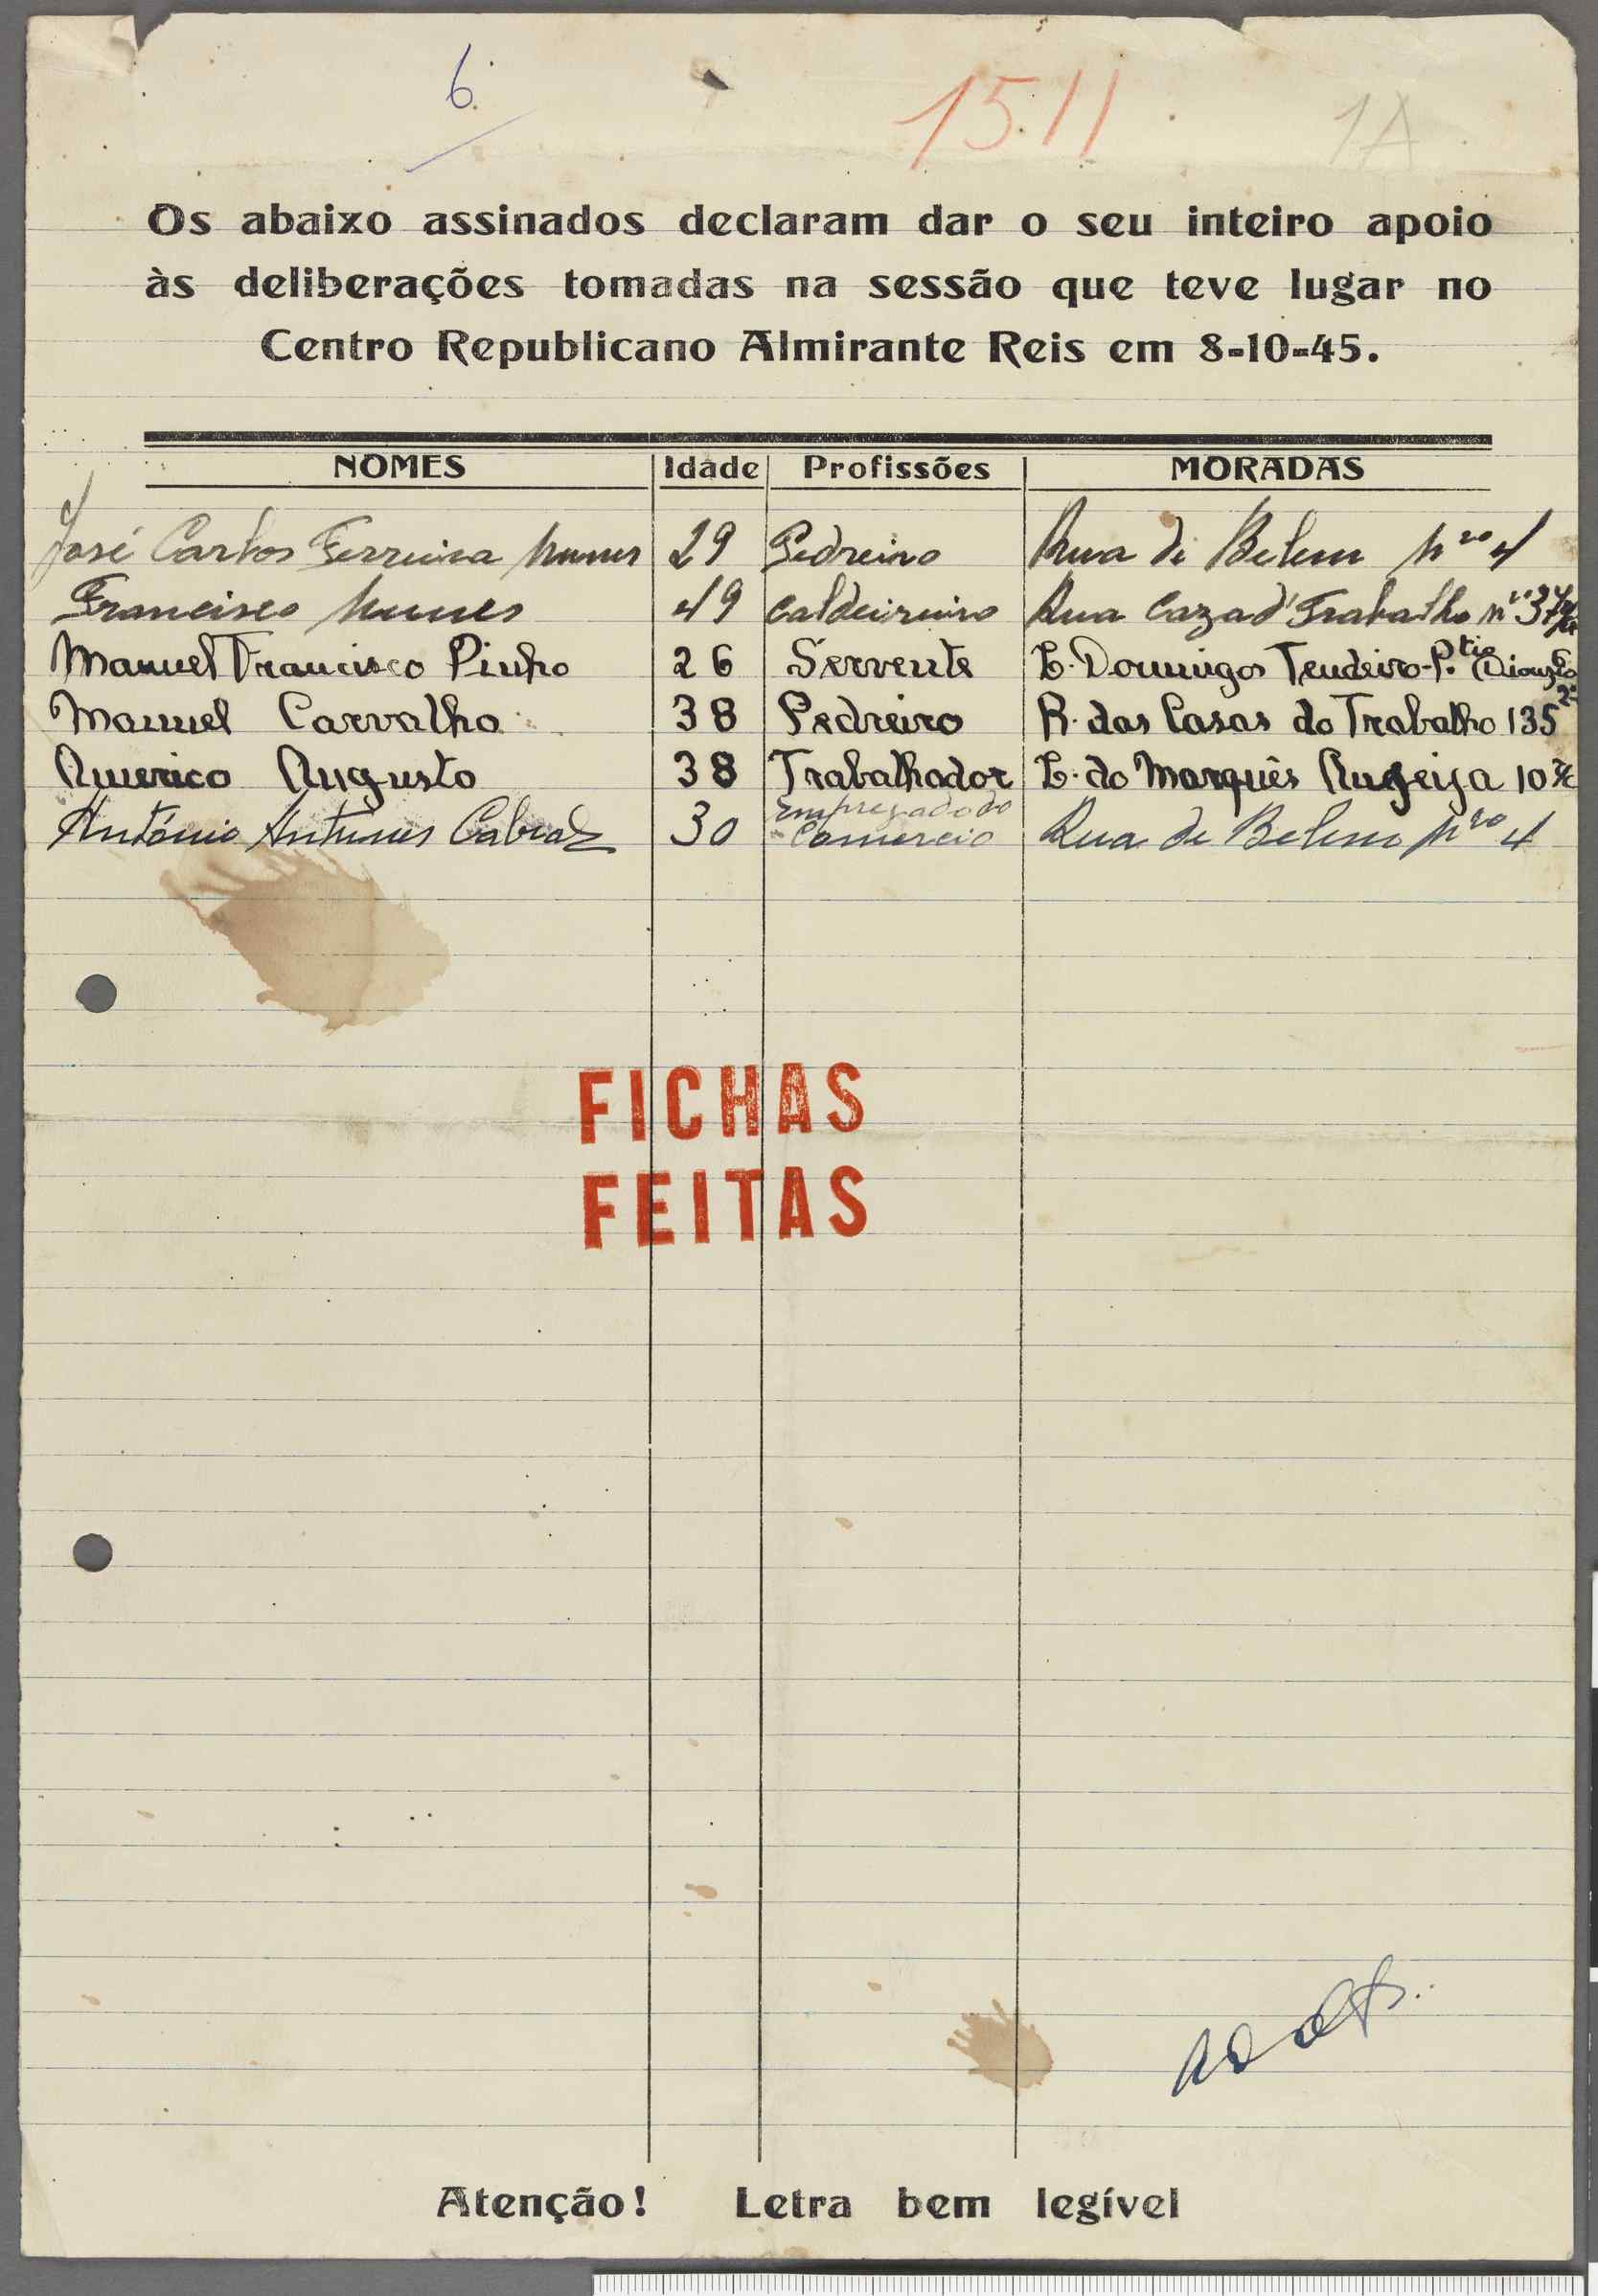 6.
1511
1A
Os abaixo assinados declaram dar o seu inteiro apoio
às deliberações tomadas na sessão que teve lugar no
Centro Republicano Almirante Reis em 8-10-45.
NOMES Idade Profissões MORADAS
José Carlos Ferreira Nunes 29 Pedreiro Rua de Belem Nro 4
Francisco Nunes 49 Caldeireiro Rua Caza d' Trabalho nro
Manuel Francisco Pinho 26 Servente L. Domingos Tendeiro-P.tio
Manuel Carvalho 38 Pedreiro R. das Casas do Trabalho 135 2º
Americo Augusto 38 Trabalhador L. do Marquês Angeija 10
António Antunes Cabral 30 Empregado do Comercio Rua de Belem Nro 4
FICHAS
FEITAS
Atenção! Letra bem legível